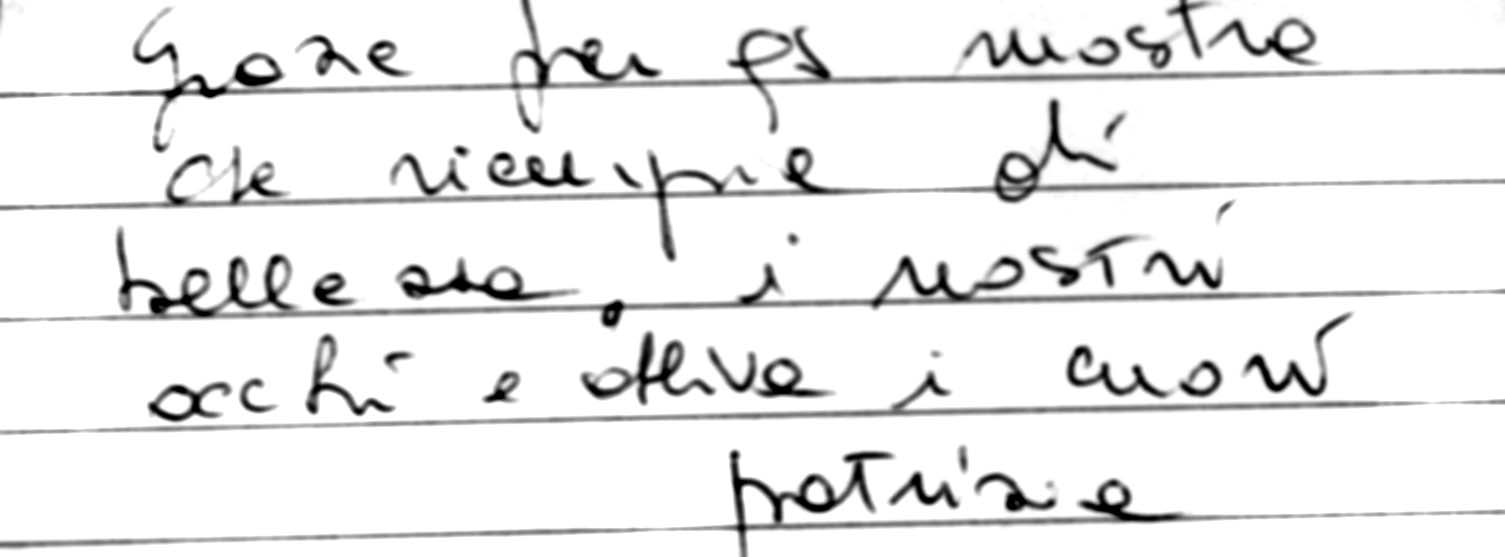 Grazie per la mostra
che riempie di
bellezza i nostri
occhi e attiva i cuori
Patrizia